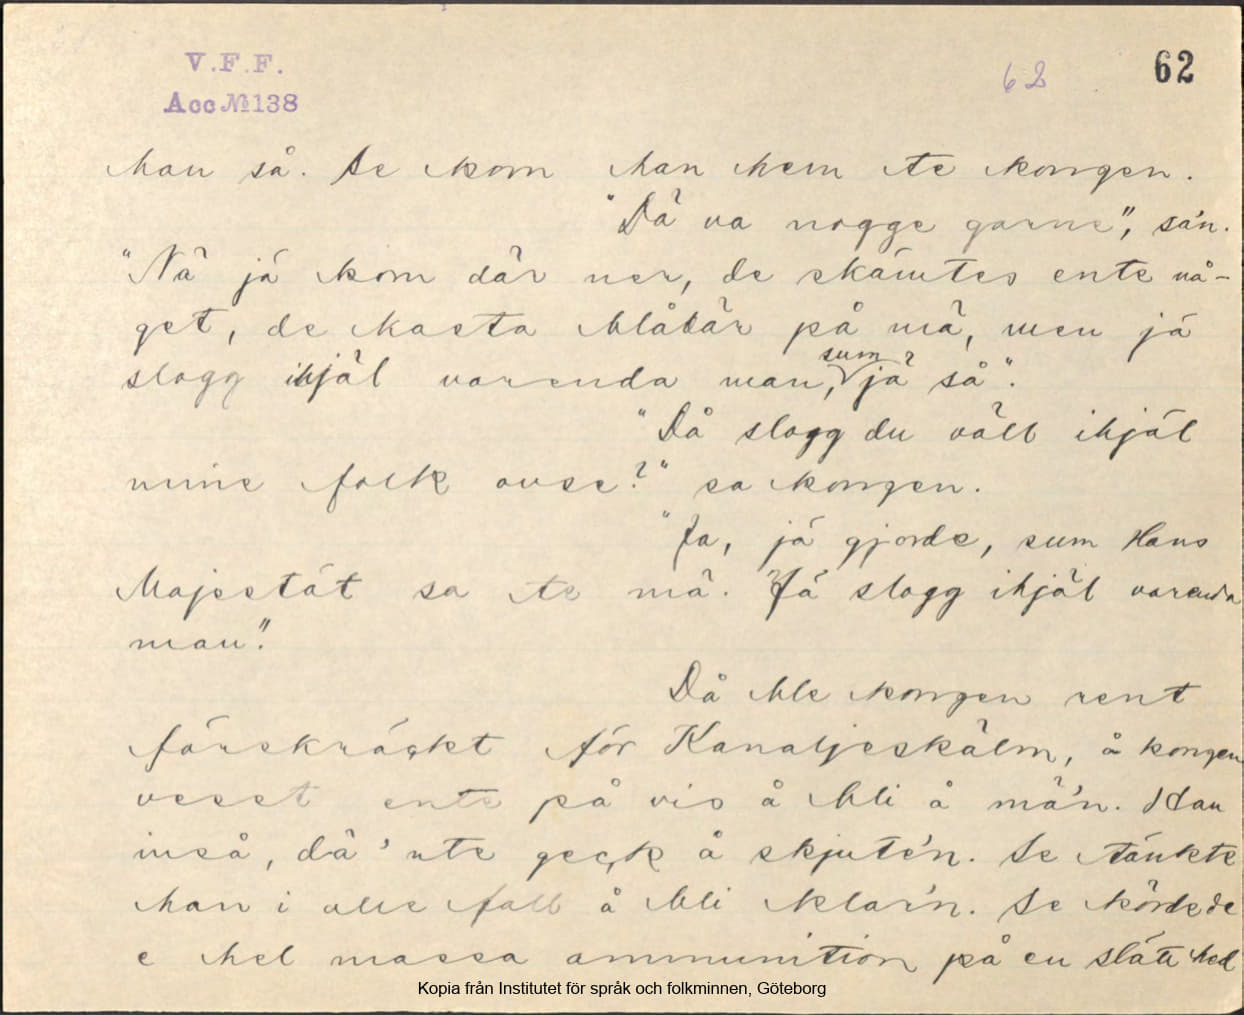 V.F.F.
Acc №138
62
62
han så. Se kom han hem te kongen.
"Dä va nogge garne", sa'n.
"Nä jä kom där ner, de skämtes ente nå-
get, de kasta blåbär på mä, men jä
slogg ihjäl varenda man, sum jä så".
"Då slogg du väll ihjäl
mine folk ause?" sa kongen.
"Ja, jä gjorde, sum Hans
Majestät sa te mä. Jä slogg ihjäl varenda
man".
Då ble kongen rent
förskräckt för Kanaljeskälm, å kongen
vesst ente på vis å bli å mä'n. Han
inså, dä' nte geck å skjute'n. Se tänkte
han i alle fall å bli klar'n. Se körde de
e hel massa ammunition på en slätt hed
Kopia från Institutet för språk och folkminnen, Göteborg